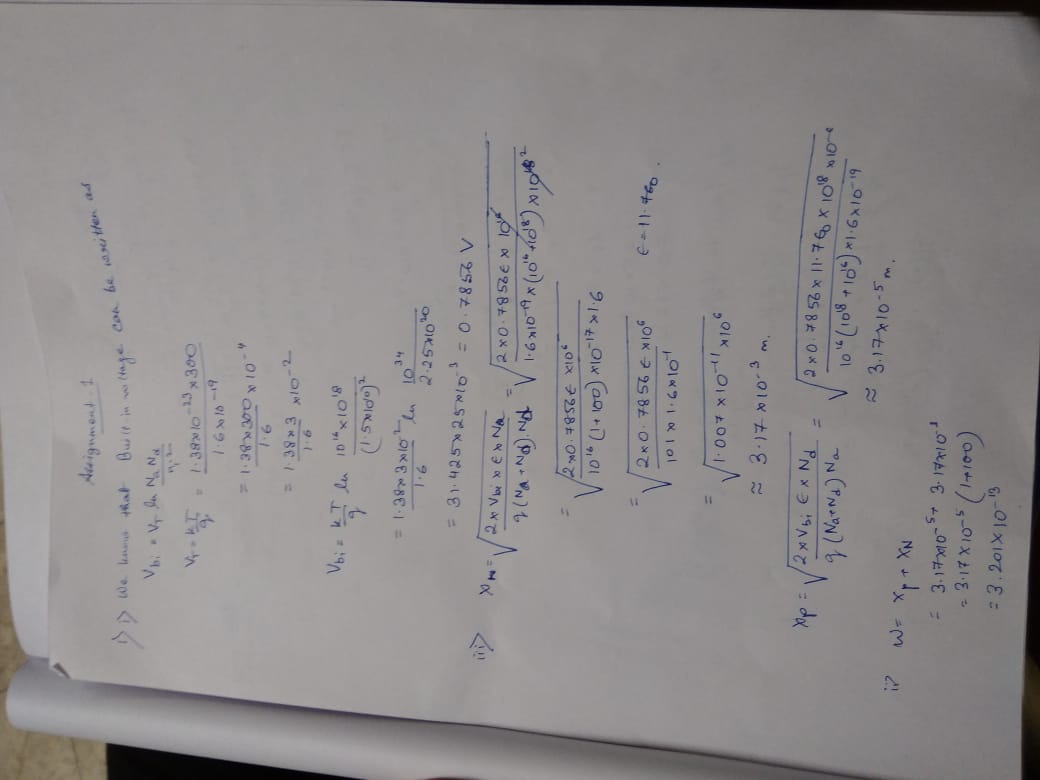 Assignment-1
1) i) We know that Built in voltage can be written as
Vbi = VT ln NaNd / ni²
VT = kT/q = 1.38×10⁻²³×300 / 1.6×10⁻¹⁹
= 1.38×300 / 1.6 ×10⁻⁴
= 1.38×3 / 1.6 ×10⁻²
Vbi = kT/q ln 10¹⁶×10¹⁸ / (1.5×10¹⁰)²
= 1.38×3×10⁻² / 1.6 ln 10³⁴ / 2.25×10²⁰
= 31.425×25×10⁻³ = 0.7856 V
iii) xN = √(2×Vbi×ε×Na / q(Na+Nd).Nd) = √(2×0.7856ε×10 / 1.6×10⁻¹⁹×(10¹⁶+10¹⁸)×10)
= √(2×0.7856ε×10⁶ / 10¹⁶(1+100)×10⁻¹⁷×1.6)
= √(2×0.7856ε×10⁶ / 101×1.6×10⁻¹) ε=11.7ε₀.
= √(1.007×10⁻¹¹×10⁶)
≈ 3.17×10⁻³ m.
xp = √(2×Vbi ε×Nd / q(Na+Nd)Na) = √(2×0.7856×11.7ε₀×10¹⁸×10⁻⁶ / 10¹⁶(10¹⁸+10¹⁶)×1.6×10⁻¹⁹)
≈ 3.17×10⁻⁵ m.
ii) W = xp + xN
= 3.17×10⁻⁵ + 3.17×10⁻³
= 3.17×10⁻⁵ (1+100)
= 3.201×10⁻³